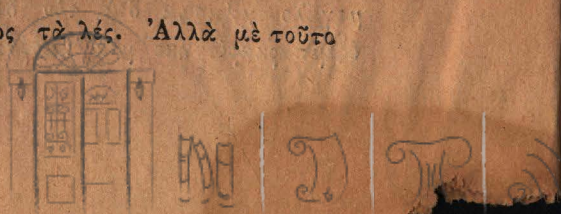 ς τὰ λές. Ἀλλὰ μὲ τοῦτο